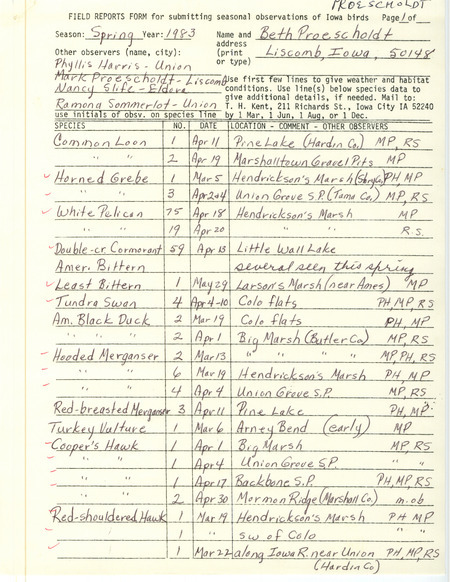 PROESCHOLDT
FIELD REPORTS FORM for submitting seasonal observations of Iowa birds Page 1 of
Season: Spring Year: 1983 Name and address (print or type) Beth Proescholdt
Liscomb, Iowa, 50148
Other observers (name, city):
Phyllis Harris - Union
Mark Proescholdt - Liscomb
Nancy Slife - Eldora
Ramona Sommerlot - Union
use initials of obsv. on species line
Use first few lines to give weather and habitat
conditions. Use line(s) below species data to
give additional details, if needed. Mail to:
T. H. Kent, 211 Richards St., Iowa City IA 52240
by 1 Mar, 1 Jun, 1 Aug, or 1 Dec.
SPECIES NO. DATE LOCATION - COMMENT - OTHER OBSERVERS
Common Loon 1 Apr 11 Pine Lake (Hardin Co.) MP, RS
" " 2 Apr 19 Marshalltown Gravel Pits MP
Horned Grebe 1 Mar 5 Hendrickson's Marsh (Story Co) PH, MP
" " 3 Apr 2+4 Union Grove S.P. (Tama Co.) MP, RS
White Pelican 75 Apr 18 Hendrickson's Marsh MP
" " 19 Apr 20 R.S.
Double-cr. Cormorant 59 Apr 13 Little Wall Lake
Ameri. Bittern several seen this spring
Least Bittern 1 May 29 Larson's Marsh (near Ames) MP
Tundra Swan 4 Apr 4-10 Colo flats PH, MP, RS
Am. Black Duck 2 Mar 19 Colo flats PH, MP
2 Apr 1 Big Marsh (Butler Co) MP, RS
Hooded Merganser 2 Mar 13 " " " " MP, PH, RS
" " 6 Mar 19 Hendrickson's Marsh PH, MP
" " 4 Apr 4 Union Grove S.P. MP, RS
Red-breasted Merganser 3 Apr 11 Pine Lake PH, MP
Turkey Vulture 1 Mar 6 Arney Bend (early) MP
Cooper's Hawk 1 Apr 1 Big Marsh MP, RS
" " 1 Apr 4 Union Grove S.P. " "
" " 1 Apr 17 Backbone S.P. PH, MP, RS
" " 2 Apr 30 Mormon Ridge (Marshall Co.) m.ob
Red-shouldered Hawk 1 Mar 19 Hendrickson's Marsh PH MP
1 " s.w. of Colo " "
1 Mar 22 along Iowa R. near Union PH, MP, RS
(Hardin Co)